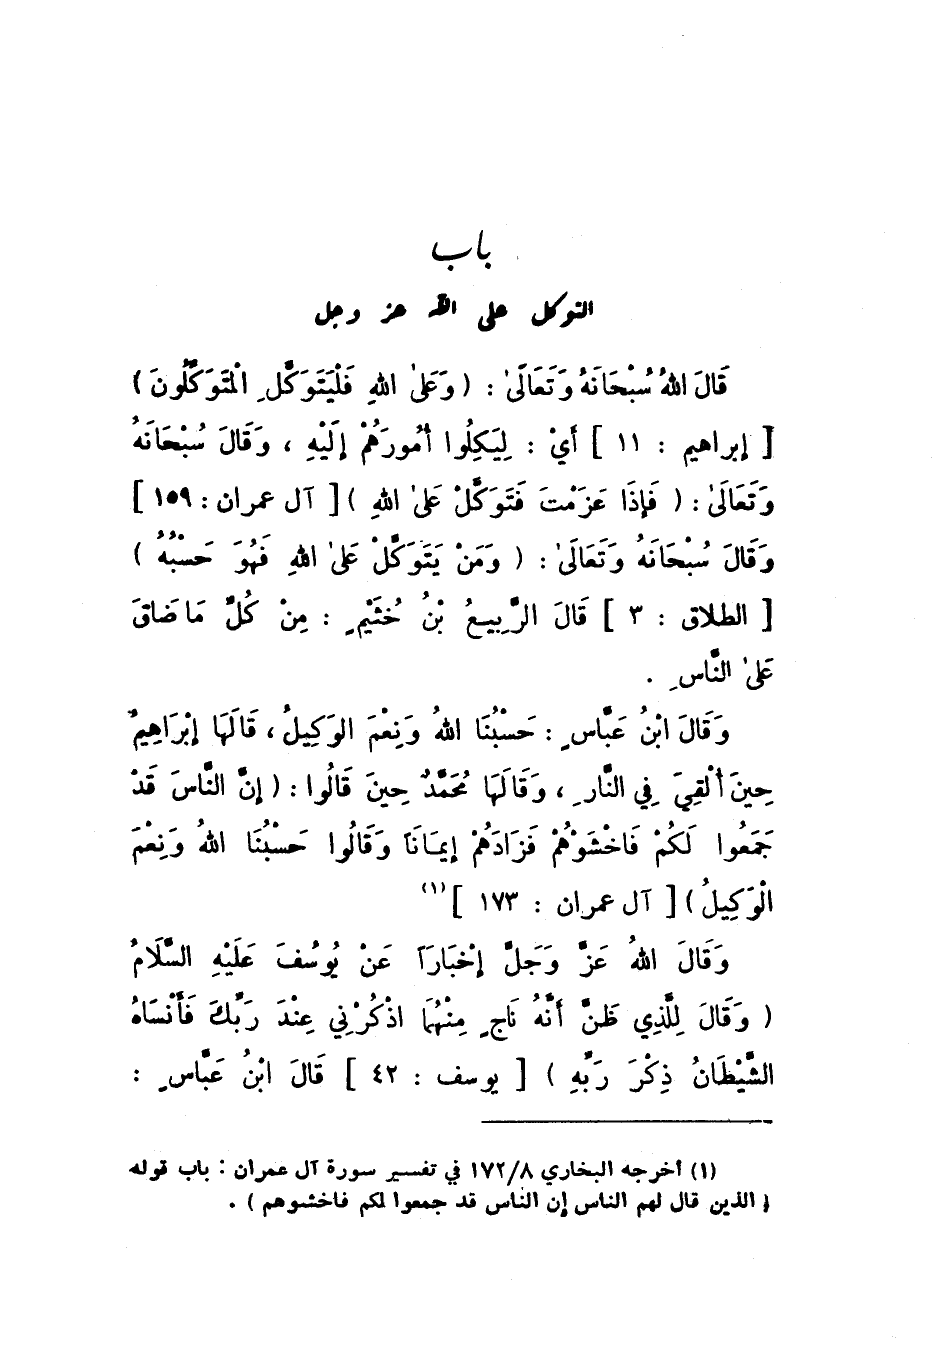 باب
التوكل على الله عز وجل
قَالَ اللهُ سُبْحَانَهُ وَتَعَالَىٰ : ( وَعَلىٰ اللهِ فَلْيَتَوَكَّلِ الْمُتَوَكِّلُونَ )
[ إبراهيم : ١١ ] أَيْ : لِيَكِلُوا أُمُورَهُمْ إِلَيْهِ ، وَقَالَ سُبْحَانَهُ
وَتَعَالَىٰ : ( فَإِذَا عَزَمْتَ فَتَوَكَّلْ عَلىٰ اللهِ ) [ آل عمران : ١٥٩ ]
وَقَالَ سُبْحَانَهُ وَتَعَالَىٰ : ( وَمَنْ يَتَوَكَّلْ عَلىٰ اللهِ فَهُوَ حَسْبُهُ )
[ الطلاق : ٣ ] قَالَ الرَّبِيعُ بْنُ خُثَيْمٍ : مِنْ كُلِّ مَا ضَاقَ
عَلىٰ النَّاسِ .
وَقَالَ ابْنُ عَبَّاسٍ : حَسْبُنَا اللهُ وَنِعْمَ الوَكِيلُ ، قَالَهَا إِبْرَاهِيمُ
حِينَ أُلْقِيَ فِي النَّارِ ، وَقَالَهَا مُحَمَّدٌ حِينَ قَالُوا : ( إِنَّ النَّاسَ قَدْ
جَمَعُوا لَكُمْ فَاخْشَوْهُمْ فَزَادَهُمْ إِيمَانَاً وَقَالُوا حَسْبُنَا اللهُ وَنِعْمَ
الْوَكِيلُ ) [ آل عمران : ١٧٣ ] (١)
وَقَالَ اللهُ عَزَّ وَجَلَّ إِخْبَارَاً عَنْ يُوسُفَ عَلَيْهِ السَّلَامُ
( وَقَالَ لِلَّذِي ظَنَّ أَنَّهُ نَاجٍ مِنْهُمَا اذْكُرْنِي عِنْدَ رَبِّكَ فَأَنْسَاهُ
الشَّيْطَانُ ذِكْرَ رَبِّهِ ) [ يوسف : ٤٢ ] قَالَ ابْنُ عَبَّاسٍ :
(١) أخرجه البخاري ١٧٢/٨ في تفسير سورة آل عمران : باب قوله
( الذين قال لهم الناس إن الناس قد جمعوا لكم فاخشوهم ) .